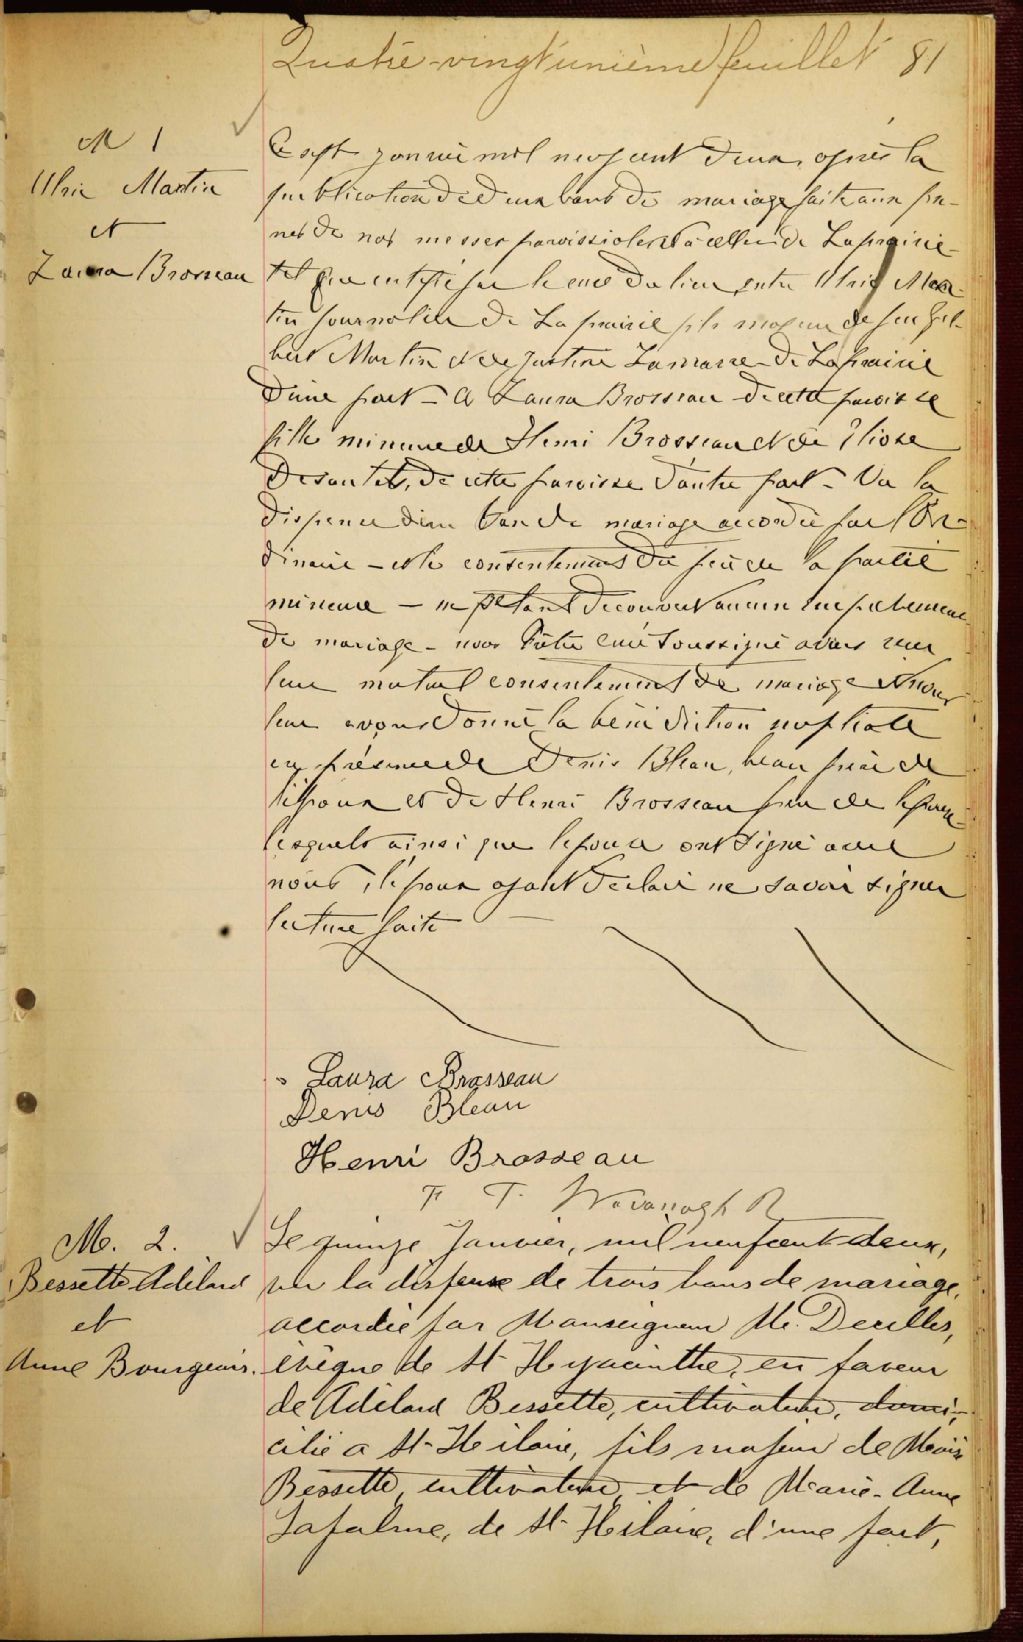 Quatre-vingt unième feuillet 81
M 1
Ulric Martin
et
Laura Brosseau
Ce sept janvier mil neuf cent deux, après la
publication de deux bans de mariage faite aux prô-
nes de nos messes paroissiales et à celles de Laprairie
tel que certifié par le curé du lieu entre Ulric Mar-
tin journalier de Laprairie fils majeur de feu Gil-
bert Martin et de Justine Lamarre de Laprairie
d'une part - et Laura Brosseau de cette paroisse
fille mineure de Henri Brosseau et de
Desautels, de cette paroisse d'autre part - Vu la
dispense d'un ban de mariage accordée par l'Or-
dinaire - et le consentement du père de la partie
mineure - ne s'étant découvert aucun empêchement
de mariage - nous Ptre curé soussigné avons reçu
leur mutuel consentement de mariage et nous
leur avons donné la bénédiction nuptiale
en présence de Denis Bleau, beau frère de
l'époux et de Henri Brosseau père de l'épouse
lesquels ainsi que l'épouse ont signé avec
nous, l'époux ayant déclaré ne savoir signer
lecture faite
Laura Brosseau
Denis Bleau
Henri Brosseau
F T Kavanagh
M. 2.
Bessette Adélard
et
Anne Bourgeois.
Le quinze Janvier, mil neuf cent deux,
vu la dispense de trois bans de mariage,
accordée par Monseigneur M. Decelles,
évêque de St Hyacinthe, en faveur
de Adélard Bessette, cultivateur, domi-
cilié a St-Hilaire, fils majeur de Moïse
Bessette, cultivateur, et de Marie-Anne
Lafalme, de St-Hilaire, d'une part,